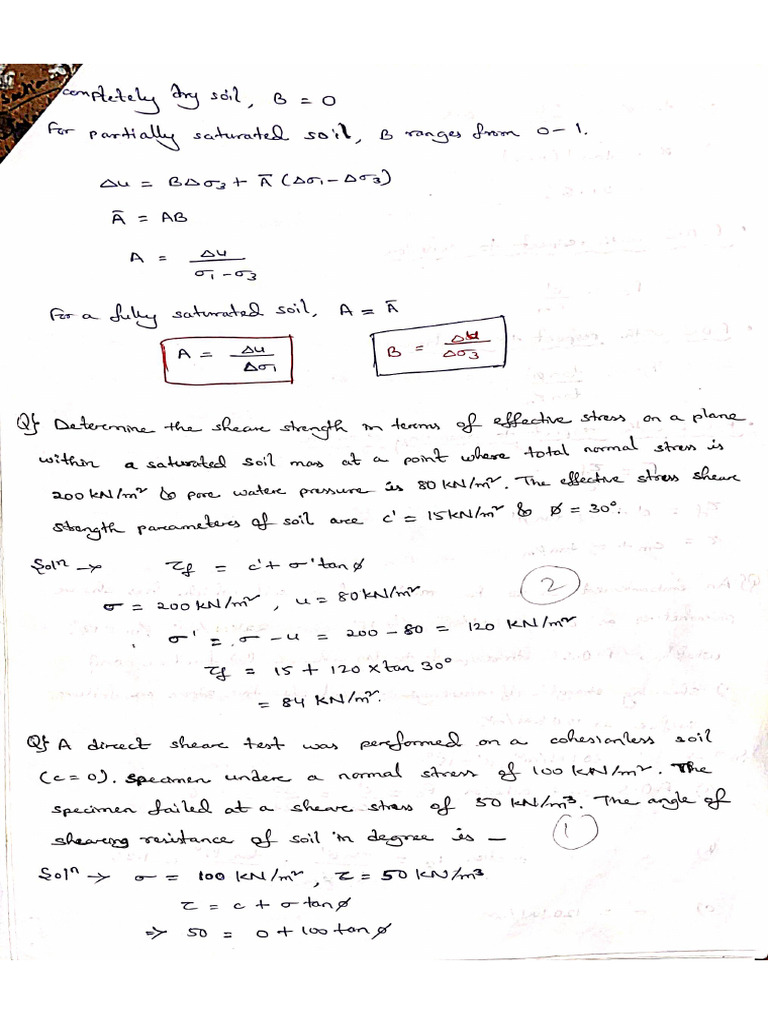 completely dry soil, B = 0
For partially saturated soil, B ranges from 0-1.
Δu = BΔσ3 + Ā (Δσ1 - Δσ3)
Ā = AB
A = Δu / σ1 - σ3
For a fully saturated soil, A = Ā
A = Δu / Δσ1
B = Δu / Δσ3
Q} Determine the sheare strength in terms of effective stress on a plane
within a saturated soil mass at a point where total normal stress is
200 kN/m² & pore watere pressure is 80 kN/m². The effective stress sheare
strength parameteres of soil are c' = 15 kN/m² & ø = 30°.
Solⁿ → τf = c' + σ' tanø
σ = 200 KN/m², u = 80 KN/m²
②
σ' = σ - u = 200 - 80 = 120 KN/m²
τf = 15 + 120 x tan 30°
= 84 KN/m².
Q} A direct sheare test was performed on a cohesionless soil
(c = 0). Specimen undere a normal stress of 100 KN/m². The
specimen failed at a sheare stress of 50 KN/m³. The angle of
shearing resistance of soil in degree is —
①
Solⁿ → σ = 100 KN/m², τ = 50 KN/m³
τ = c + σ tanø
⇒ 50 = 0 + 100 tanø